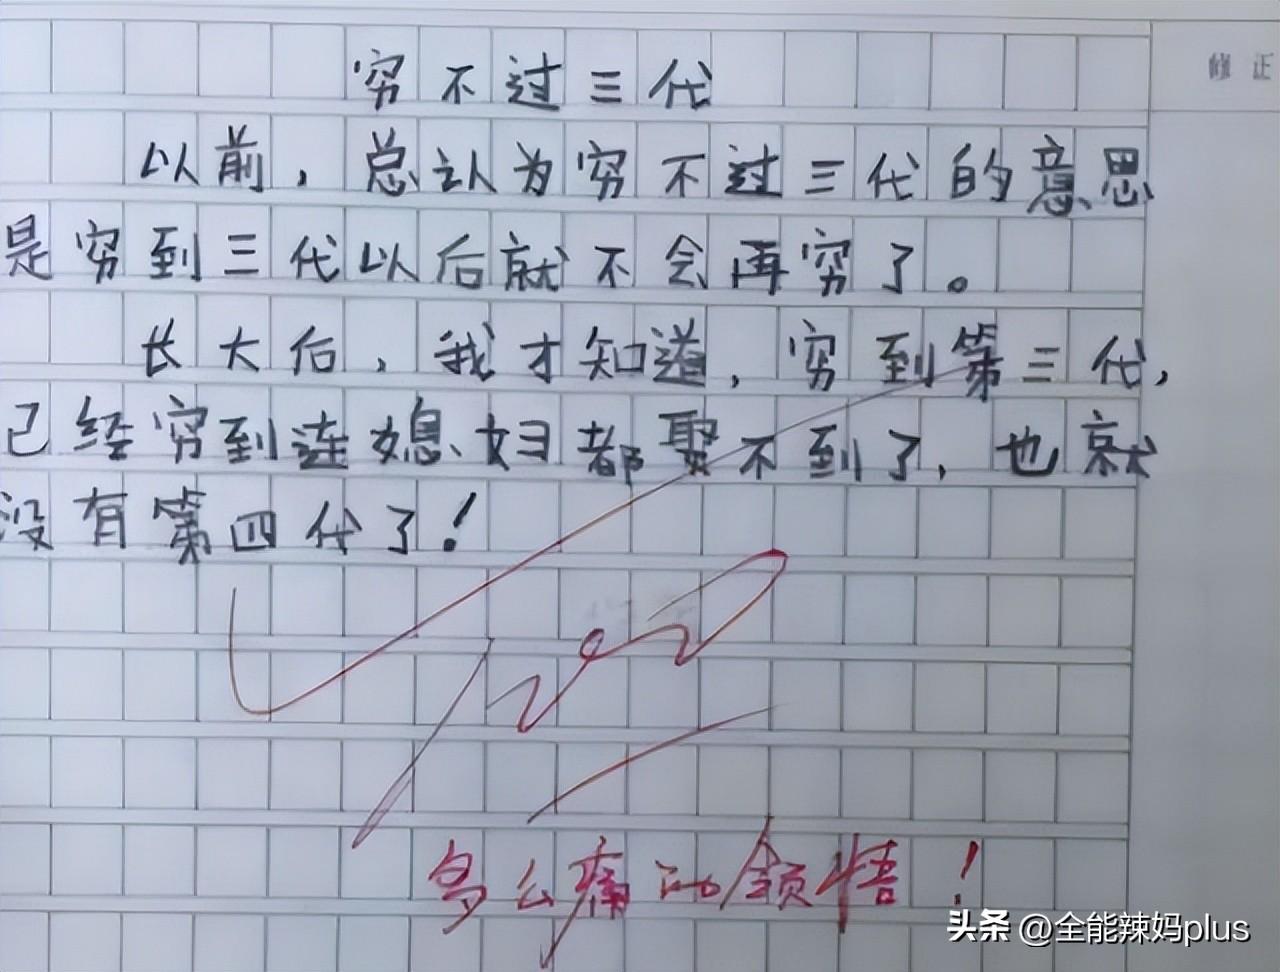 修正
穷不过三代
以前，总认为穷不过三代的意思
是穷到三代以后就不会再穷了。
长大后，我才知道，穷到第三代，
已经穷到连媳妇都娶不到了，也就
没有第四代了！
多么痛的领悟！
头条 @全能辣妈plus